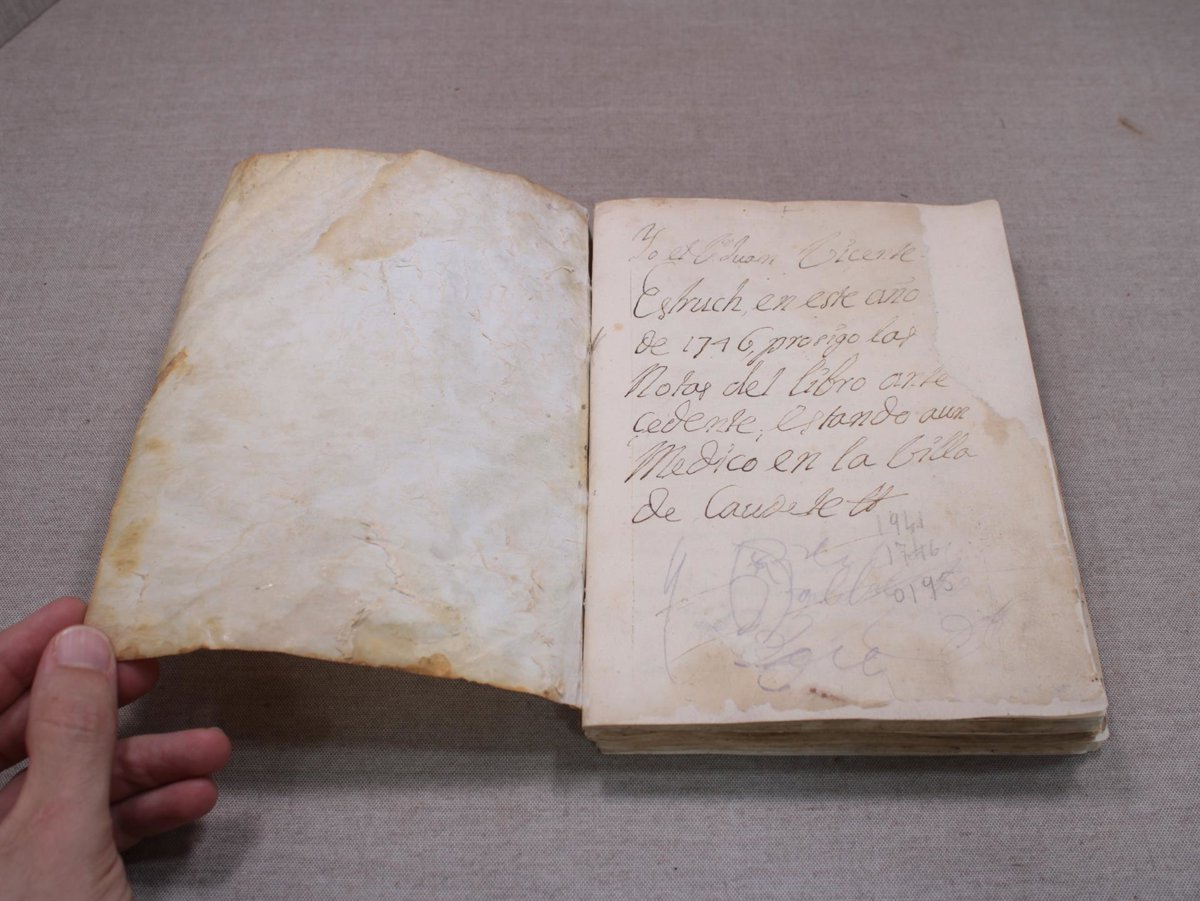 Yo el Dr Juan Vicente
Estruch, en este año
de 1746, prosigo las
Notas del libro ante
cedente, estando aun
Medico en la billa
de Caudete
1941
1746
0195